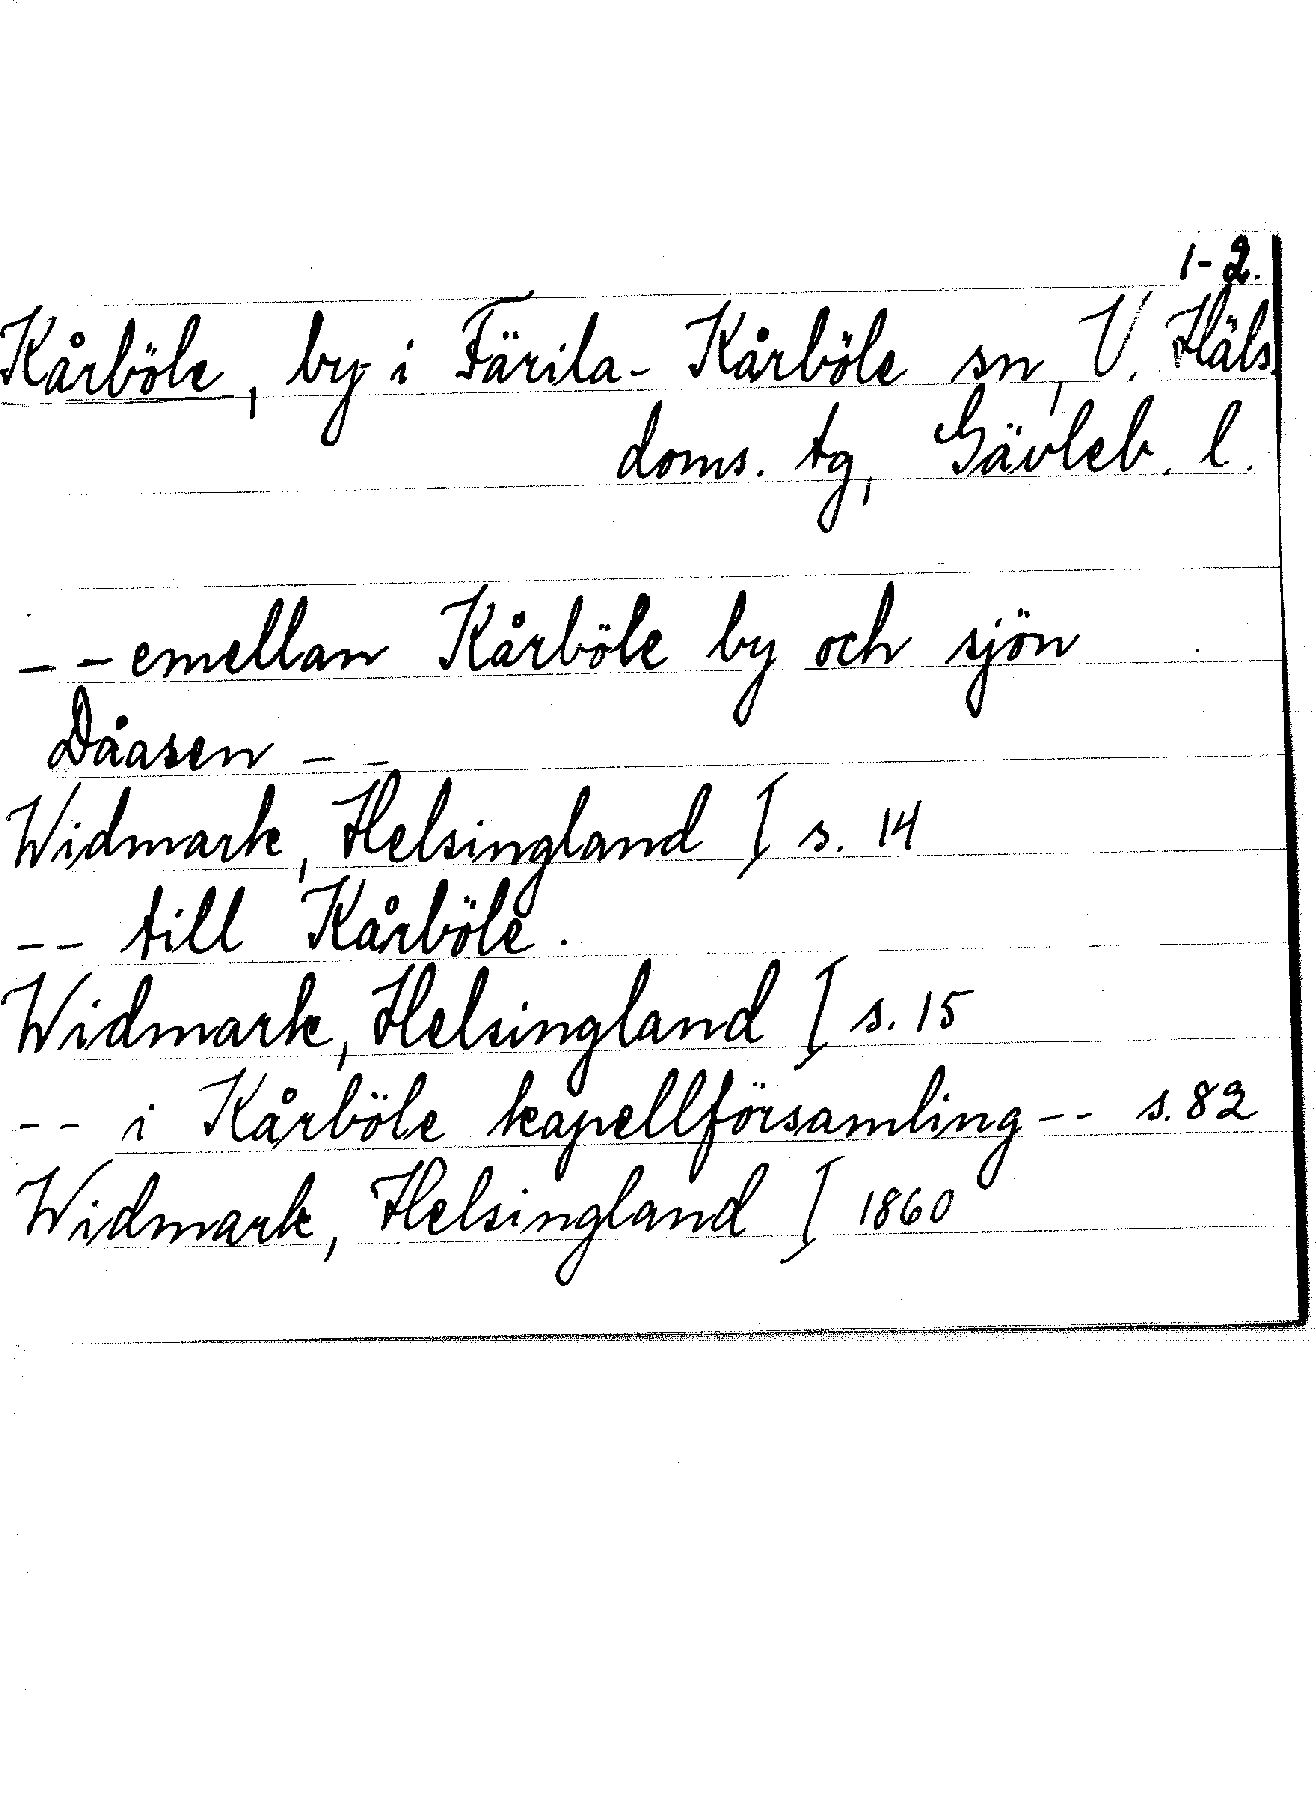 1-2.
Kårböle, by i Färila-Kårböle sn, V. Häls.
doms. tg, Gävleb. l.
-- emellan Kårböle by och sjön
Dåasen --
Widmark, Helsingland I s. 14
-- till Kårböle.
Widmark, Helsingland I s. 15
-- i Kårböle kapellförsamling -- s. 82
Widmark, Helsingland I 1860